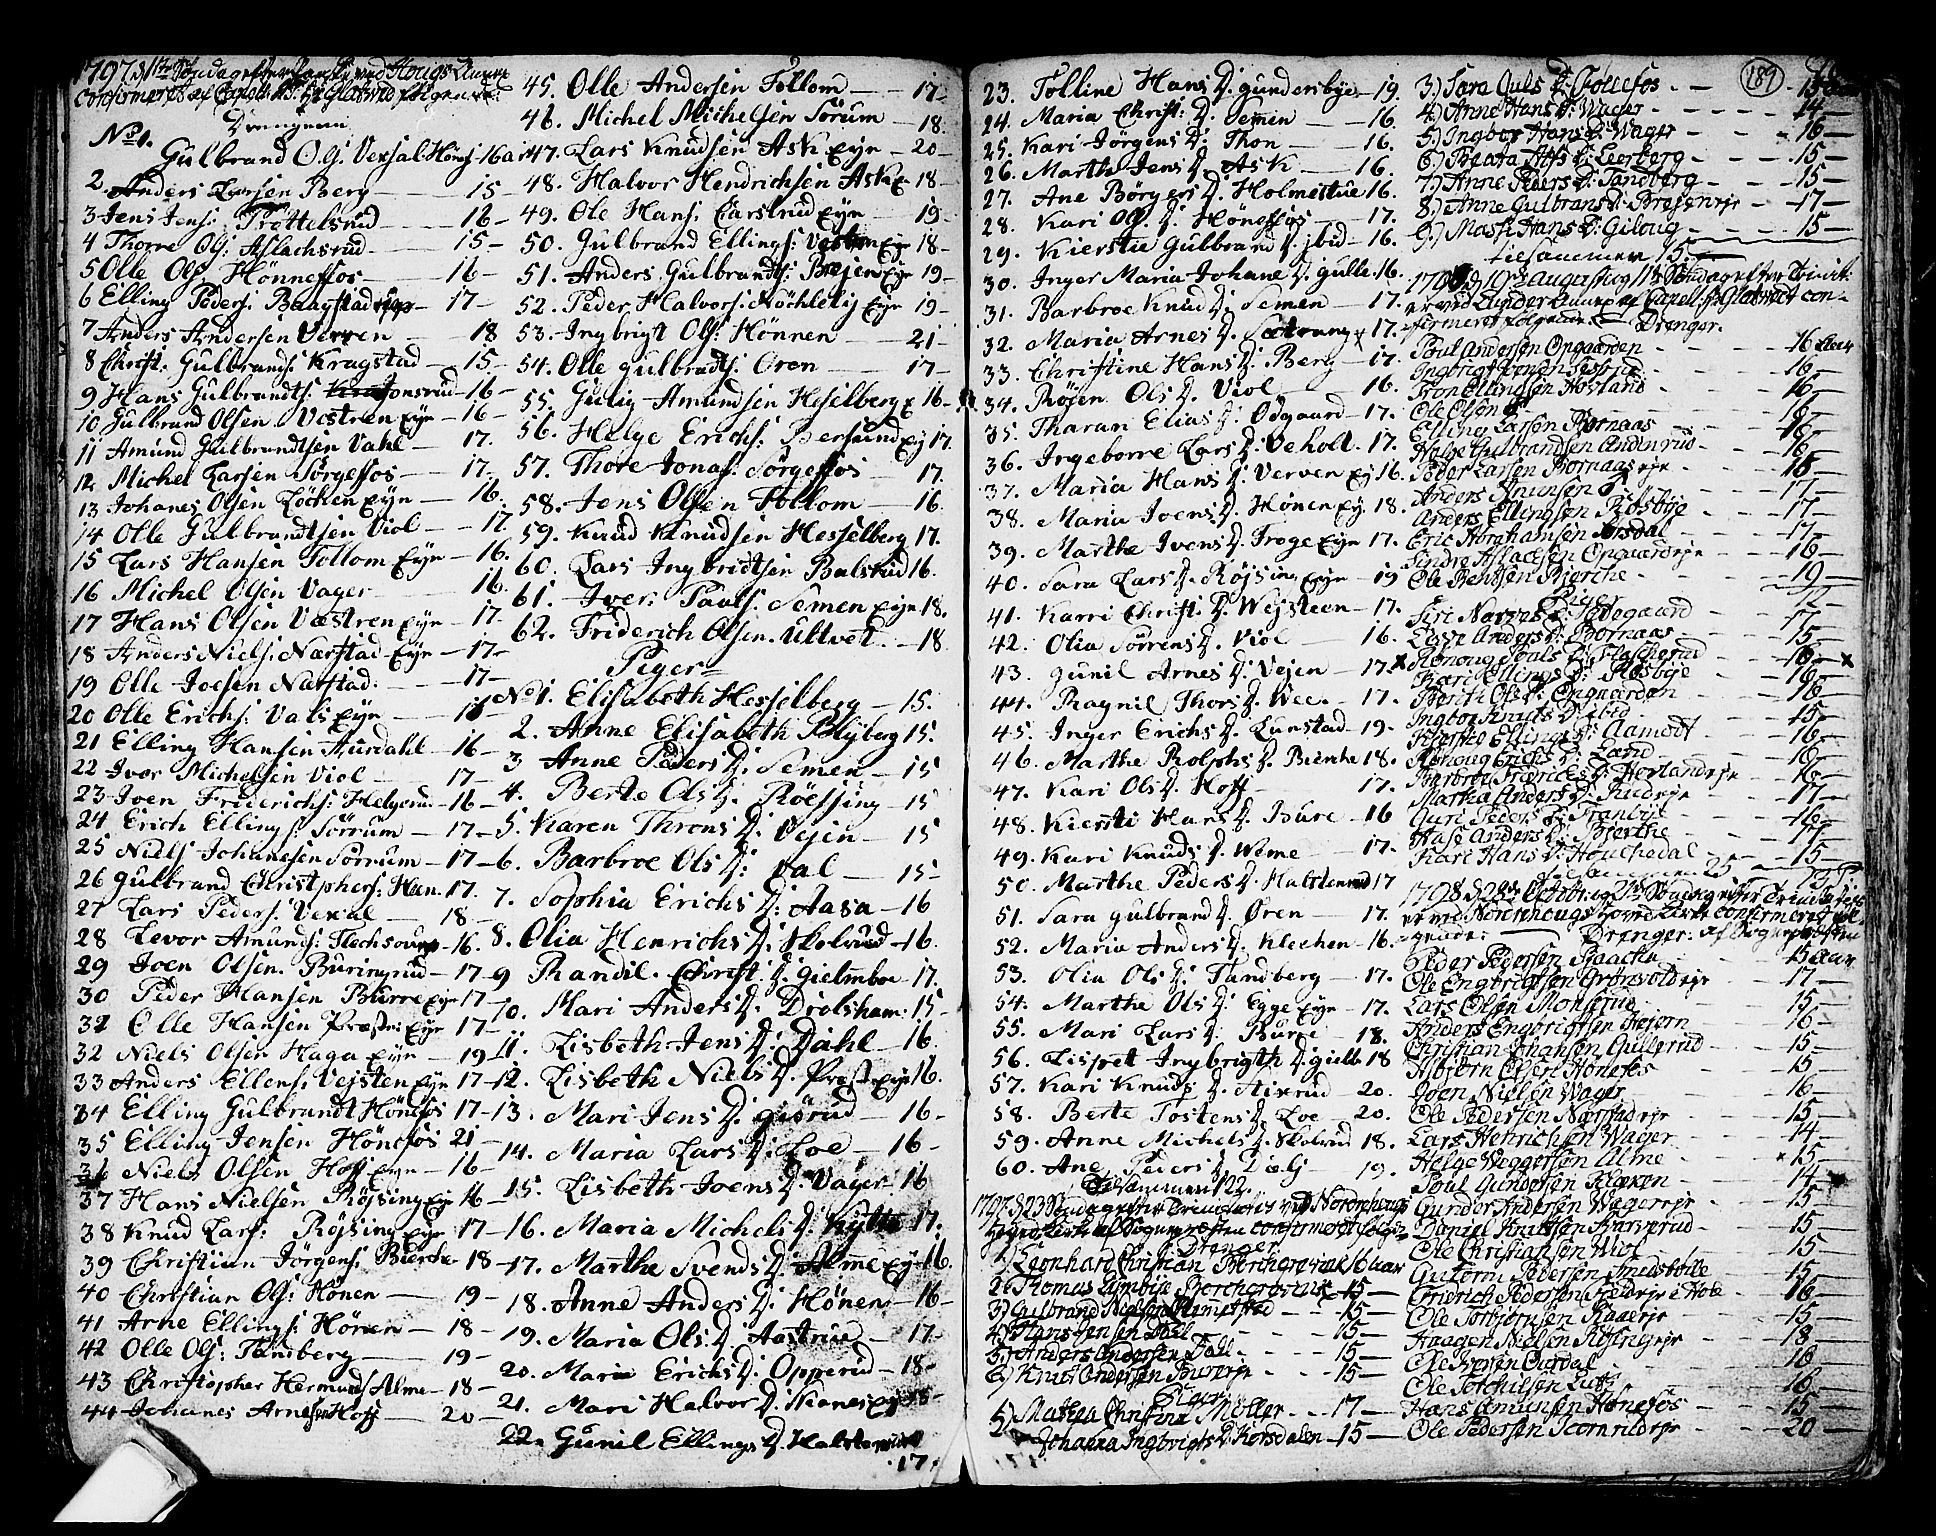 1797 d: 1ste Søndag efter Paaske ved Hougs Annex
confirmeret af Capell: Hr: Glatved følgende:
Drengene
No 1. Gulbrand Ols: Vexsal Hønsf 16 aar
2. Anders Larsen Berg 15
3 Jens Jens: Trøttelsrud 16
4 Thorre Ols: Aslachsrud 15
5 Olle Ols: Hønnefsos 16
6 Elling Peders: Baagstad 17
7 Anders Andersen Verven 18
8 Christ: Gulbrands: Kragstad 15
9 Hans Gulbrandts: Tonsrud 16
10 Gulbrand Olsen Vestren Eyn 16
11 Amund Gulbrandtsen Vahl 17.
12 Michel Larsen Sørgefsos 17.
13 Johanes Olsen Løchen Eyn 16.
14 Olle Gulbrandtsen Viol 17
15 Lars Hansen Follom Eyn 16.
16 Michel Olsen Vager 16.
17 Hans Olsen Vestren Eyn 17.
18 Anders Niels: Nærstad Eyn 17
19 Olle Joesen Nærstad 17
20 Olle Erichs: Vals Eyn 16
21 Elling Hansen Aurdahl 16
22 Iver Michelsen Viol 17
23 Joen Friderichs: Helgerud 16
24 Erich Ellings: Sørrum 17
25 Niels Johanesen Sørrum 17
26 Gulbrand Christophers: Haa 17.
27 Lars Peders: Vexal 18
28 Levor Amunds: Flechsoug 16.
29 Joen Olsen Buringrud 17
30 Peder Hansen Burre Eyn 17
31 Olle Hansen Præste: Eyn 17
32 Niels Olsen Haga Eyn 19
33 Anders Ellens: Vejsten Eyn 17
34 Elling Gulbrandt Hønefos 17
35 Elling Jensen Hønefos 21
36 Niels Olsen Hoff Eyn 16
37 Hans Nielsen Røjsing Ey 16
38 Knud Lars: Røjsing Eyn 17
39 Christian Jørgens: Bierche 18
40 Christian Ols: Hønen 19
41 Arne Ellings: Hønen 18
42 Olle Ols: Tandberg 19
43 Christopher Hermunds: Alme 18
44 Johanes Arnesen Hoff 20
45. Olle Andersen Follom 17
46. Michel Michelsen Sørum 18.
47. Lars Knudsen Ask Eyn 20
48. Halvor Hendrichsen Ask E 18
49. Ole Hans: Earstrud Eyn 19
50. Gulbrand Ellings: Vestern Ey 18
51. Anders Gulbrandts: Brejen Ey 19
52. Peder Halvors: Kochlelij Eyn 19
53. Ingbrigt Ols: Hønnen 21
54. Olle Gulbradts: Oren 17
55 Gulig Amundsen Heselberg E 16
56. Helge Erichs: Bersund Ey 17.
57. Thore Jonas: Sørgefsos 17.
58. Jens Olsen Follom 16.
59. Knud Knudsen Hesselberg 17.
60. Lars Ingbridtsen Balsrud 16.
61. Iver: Pauls: Semen Eyn 18.
62. Friderich Olsen Ultvet 18
Piger
No 1. Elisabeth Hesselberg 15.
2. Anne Elisabeth Rhyberg 15.
3 Anne Peders D: Semen 15
4. Berte Ols D: Røessing 15
5. Karen Throns D: Vejen 15
6. Barbroe Ols D: Val 15
7. Sophia Erichs D: Aasa 16
8. Olia Henrichs D: Skolrud 16.
9 Randil Christ: D: Gielmboe 17.
10. Mari Anders D: Drolsham: 15
11. Lisbeth Jens D: Dahl 16.
12. Lisbeth Niels D: Præst: Eyn 16.
13. Mari Jens D: Giørud 16
14. Maria Lars D: Loe 16
15. Lisbeth Joens D: Vager 16
16. Maria Michels D: Hytte 17.
17. Marthe Svends D: Alme Ey 16.
18. Anne Anders D: Hønen 16
19. Maria Ols D: Aastrue 17
20. Maria Erichs D: Opperud 18
21. Mari Halvor D: Kianes Ey 18
22. Gunil Ellings D: Halsten 17
23. Tolline Hans D: Gundersbye 19
24. Maria Christ: D: Semen 16.
25. Kari Jørgens D: Thon 16.
26. Marth Jens D: Ask 16.
27. Ane Børgers D: Holmestue 16.
28. Kari Ols D: Hønefsos 17.
29. Kierstie Gulbrand D: ibid 16.
30. Inger Maria Johane D: gulle 16.
31. Barbroe Knud D: Semen 17.
32. Maria Arnes D: Sætrang 17.
33. Christine Hans D: Berg 17.
34. Røjen Ols D: Viol 16.
35. Tharan Elias D: Odgaard 17.
36. Ingeborre Lars D: Veholt 17.
37. Maria Hans D: Verven Ej 16.
38. Maria Joens D: Hønen Ey 18.
39. Marthe Ivens D: Froge Eyn 17.
40. Sara Lars D: Røjsing Eyn 19
41. Karri Christ: D: Wejsteen 17.
42. Olia Sørrens D: Viol 16.
43. Gunil Arnes D: Vejen 17.
44. Ragnil Thors D: Wee 17.
45. Inger Erichs D: Lunstad 19.
46. Marthe Rolphs D: Bierche 18.
47. Kari Ols D: Hoff 17.
48. Kiersti Hans D: Bure 16
49. Kari Knuds D: Weme 17.
50. Marthe Peders D: Halstenrud 17
51. Sara Gulbrand D: Øren 17.
52. Maria Anders D: Klechen 16.
53. Olia Ols D: Tandberg 17.
54. Marthe Ols D: Egge Eyn 17.
55. Mari Lars D: Burre 18.
56. Lispet Ingbrigth D: gielb 18
57. Kari Knuds D: Stixrud 20.
58. Berte Tostens D: Loe 20.
59. Anne Michels D: Skolrud 18.
60. Ane Peders D: Lielj 19.
Tilsammen 122.
1797 d: 23 Søndag efter Trinitatis ved Nordrehougs
Hovedkirke af Sognepræsten confirmeret følge-
Drenger
1) Leonhard Christian Borchgrevink 16 aar
2 Thomas Lymbye Borchgrevink 15
3) Gulbrand Nielsen Hempstad 15
4) Hans Jensen Dall 15
5) Anders Andersen Dall 15
6) Knut Andersen Burreje 15
Piger
1) Mathea Christina Møller 17
2) Johanna Ingbrigts D: Korsdalen 15
3) Sara Ouls D: Follefos 15
4) Anne Hans D: Wager 14
5) Ingbor Hans D: Wager 16
6) Beata Alfs D: Leerberg 15
7) Anne Peders D: Tandberg 15
8) Anne Gulbrans D: Bregeneje 17
9) Massi Hans D: Giloug 15
tilsammen 15.
1798 d: 10de Augusti og 11te Søndag efter Trinit:
er ved Lunder Annex af Capel: Hr Glatvedt con-
firmeret følgende: Drenger.
Poul Andersen Opgaarden 16 Aar
Ingbrigt Ivenen 16
Tron Ellingsen Hovland 16
Ole Olsen 16
Elling Larsen Biørnaas 16
Helge Gulbrandsen Anderud 16
Peder Larsen Biørnaaseje 16
Anders Knutsen 17
Anders Ellingsen Røsbye 17
Eric Abrahamsen Sørsdal 17
Sindre Aslacsen Opgaardeje 16
Ole Bentsen Bjerche 19
Piger
Siri Narves D: Ødegaard 17
Lisve Anders D: Biørnaas 15
Rønoug Pouls D: Flascherud 16
Kari Ellings D: Røsbye 16
Børith Ols D: Opgaarden 16
Ingbor Knuts D: ibid 15
Kierstie Ellings D: Aamodt 16
Rønoug Erichs D: Land 16
Barbroe Friderics D: Hovlandeje 16
Martha Anders D: Rudeje 17
Guri Peders D: Tranbye 16
Aase Anders D: Bjerche 17
Kari Hans D: Houchedal 15
tilsammen 25
1798 d: 28de Octobr: og 21de Søndag efter Trinitatis
er ved Nordrehougs Hovedkirke confirmeret føl-
gende: Drenger: af Sognepræsten
Peder Pedersen Braacka 15 Aar
Ole Engbrigtsen Grønvoldeje 17
Lars Olsen Monserud 15
Anders Engbrigtsen Hejern 16
Christian Johansen Gullerud 15
Asbjørn Olsen Hønefos 15
Joen Nielsen Wager 16
Ole Pedersen Nærstadeje 15
Lars Henrichsen Wager 14
Helge Weggersen Alme 15
Poul Gundersen Klæken 14
Gunder Andersen Wagereje 15
Daniel Knutsen Karverud 15
Ole Christiansen Wiol 15
Gutorm Pedersen Smedsbøle 15
Fridrich Pedersen Heideje i Hole 16
Ole Torbjørnsen Raaeeje 15
Haagen Nielsen Røsingeje 18
Ole Iversen Ourdal 16
Ole Torchilsen Lutts 16
Hans Amunsen Hønefos 15
Ole Pedersen Scorrudeje 20
189